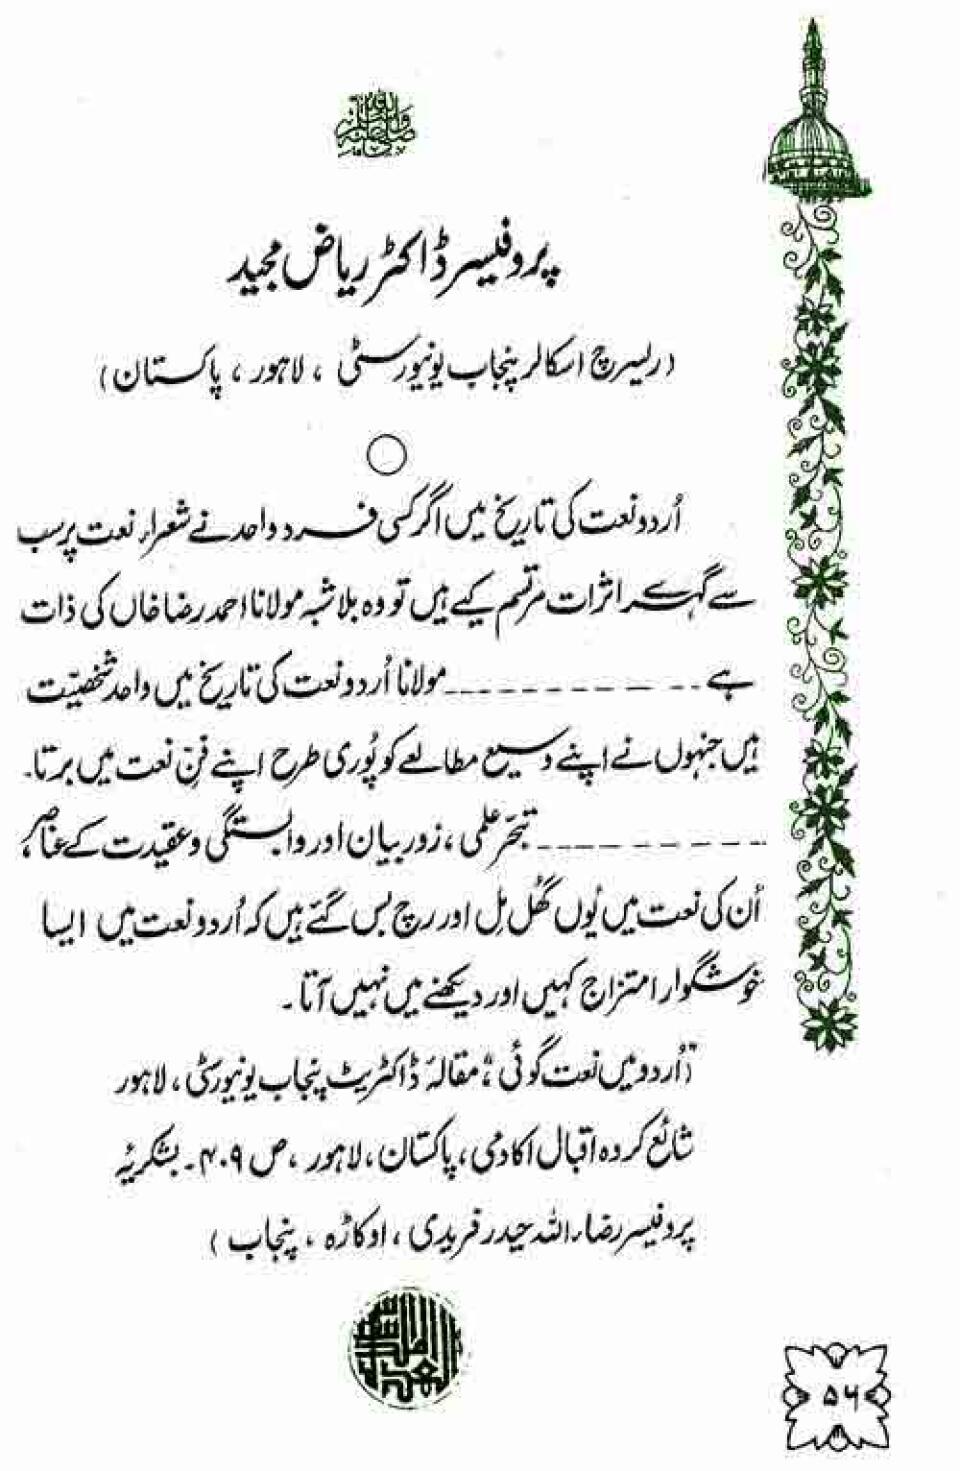 صلی اللہ علیہ وسلم
پروفیسر ڈاکٹر ریاض مجید
(ریسرچ اسکالر پنجاب یونیورسٹی ، لاہور ، پاکستان)
اُردو نعت کی تاریخ میں اگر کسی فرد واحد نے شعراء نعت پر سب
سے گہرے اثرات مرتسم کیے ہیں تو وہ بلاشبہ مولانا احمد رضا خاں کی ذات
ہے ------------ مولانا اُردو نعت کی تاریخ میں واحد شخصیّت
ہیں جنہوں نے اپنے وسیع مطالعے کو پُوری طرح اپنے فنِ نعت میں برتا۔
------------ تبحّر علمی ، زور بیان اور وابستگی و عقیدت کے عناصر ،
اُن کی نعت میں یُوں گھُل مِل اور رچ بس گئے ہیں کہ اُردو نعت میں ایسا
خوشگوار امتزاج کہیں اور دیکھنے میں نہیں آتا ۔
"اُردو میں نعت گوئی"، مقالۂ ڈاکٹریٹ پنجاب یونیورسٹی ، لاہور
شائع کردہ اقبال اکادمی ، پاکستان ، لاہور ، ص ۴۰۹ ۔ بشکریۂ
پروفیسر رضاء اللہ حیدر فریدی ، اوکاڑہ ، پنجاب )
۵۶